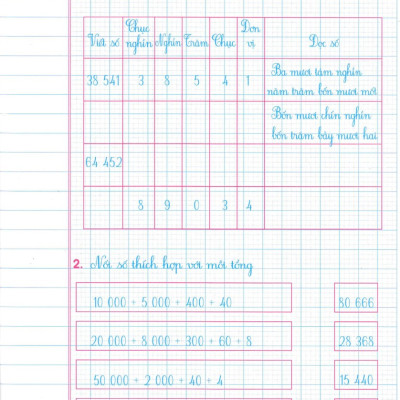 Viết số Chục nghìn Nghìn Trăm Chục Đơn vị Đọc số
38 541 3 8 5 4 1 Ba mươi tám nghìn
năm trăm bốn mươi mốt
Bốn mươi chín nghìn
bốn trăm bảy mươi hai
64 452
8 9 0 3 4
2. Nối số thích hợp với mỗi tổng
10 000 + 5 000 + 400 + 40 80 666
20 000 + 8 000 + 300 + 60 + 8 28 368
50 000 + 2 000 + 40 + 4 15 440